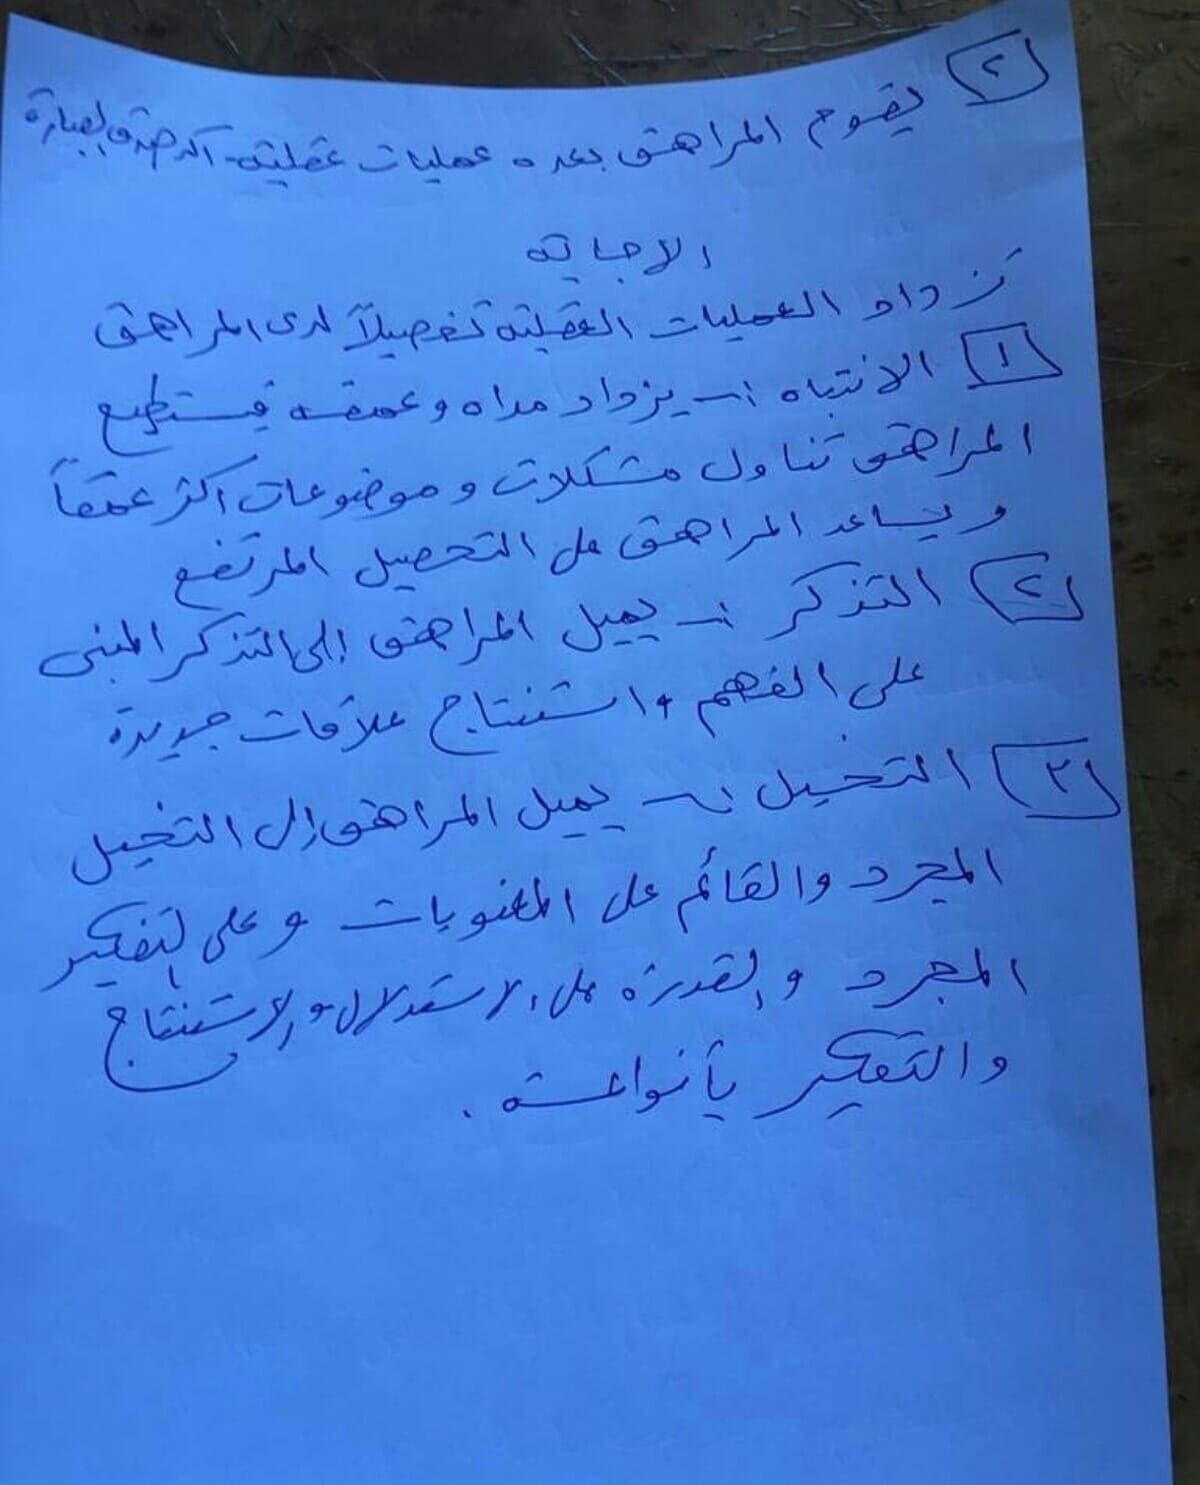 ٢ يقوم المراهق بعدة عمليات عقلية - أكد صدق العبارة
الاجابة
تزداد العمليات العقلية تفصيلاً لدى المراهق
١ الانتباه :- يزداد مداه وعمقه فيستطيع
المراهق تناول مشكلات وموضوعات اكثر عمقاً
ويساعد المراهق على التحصيل المرتفع
٢ التذكر :- يميل المراهق إلى التذكر المبنى
على الفهم واستنتاج علاقات جديدة
٣ التخيل :- يميل المراهق إلى التخيل
المجرد والقائم على المعنويات وعلى التفكير
المجرد والقدرة على الاستدلال والاستنتاج
والتفكير بأنواعه .